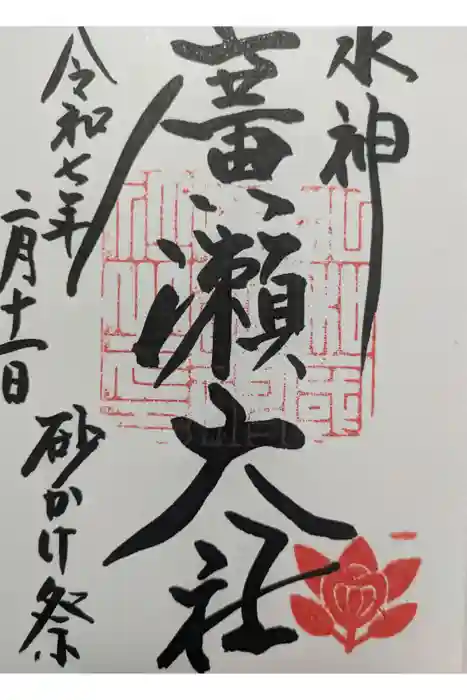 水神
廣瀬大社
令和七年
二月十一日
砂かけ祭